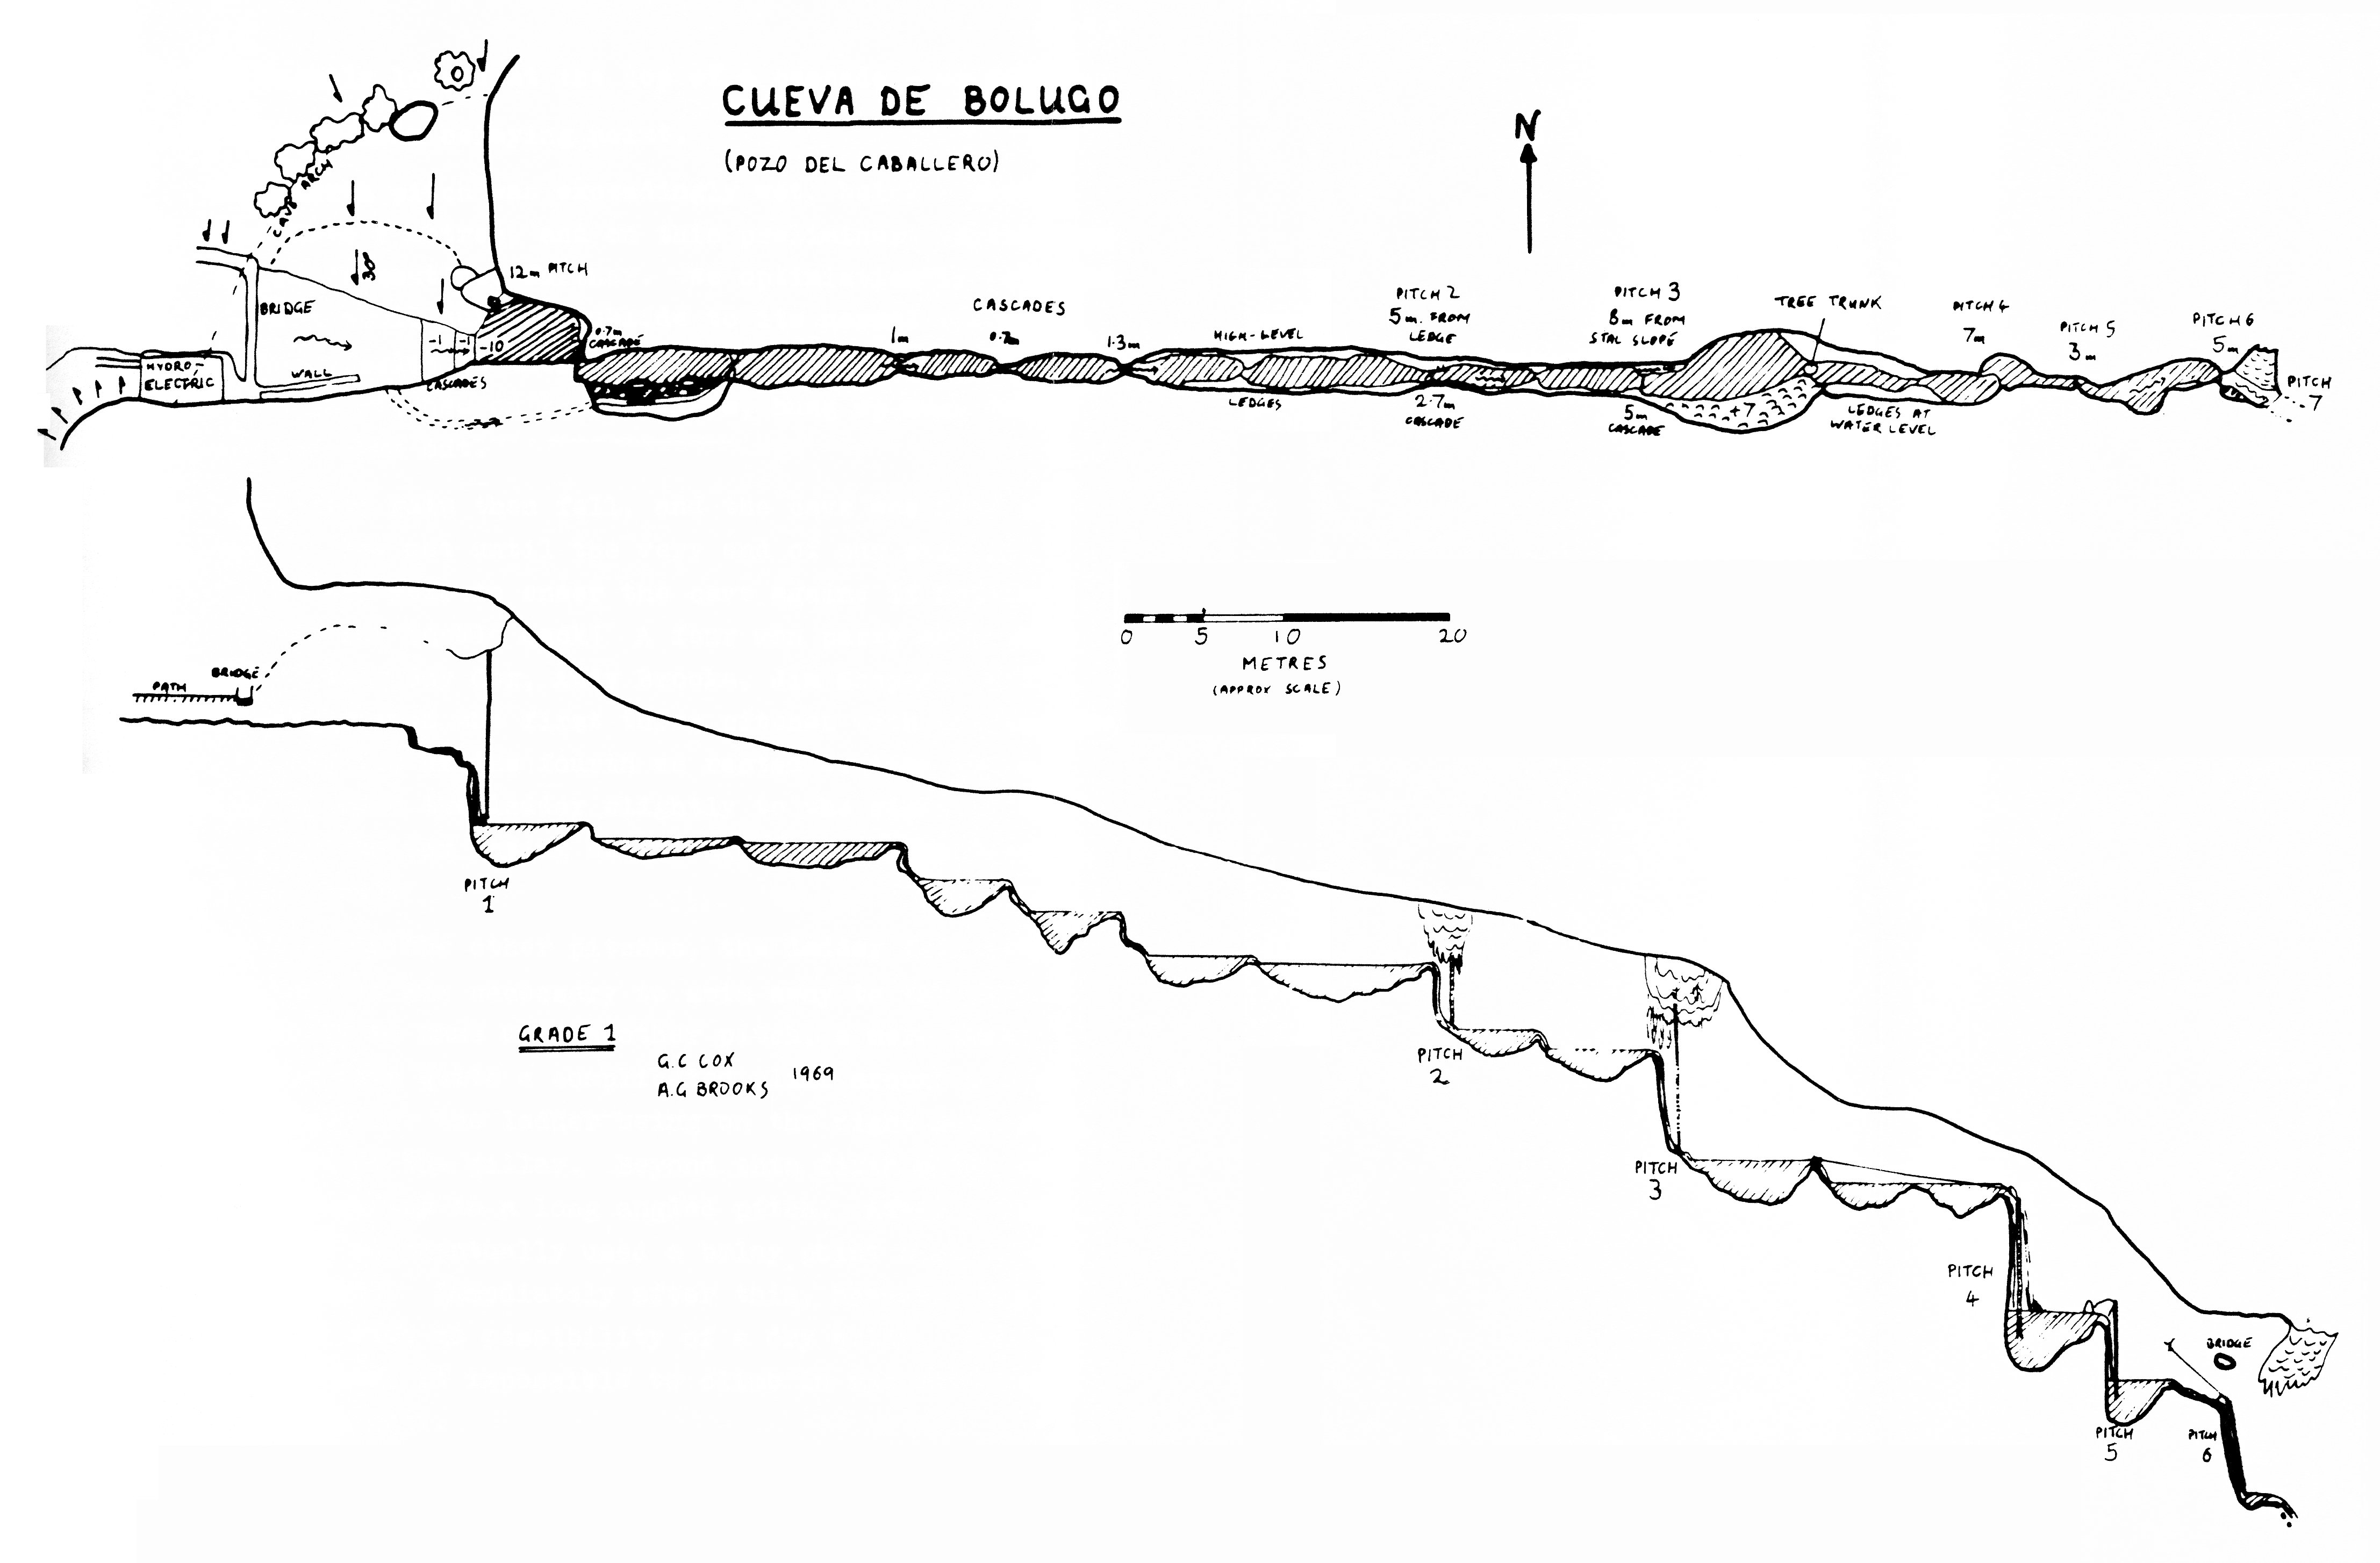 CUEVA DE BOLUGO
(POZO DEL CABALLERO)
N
CAVE ARCH
30°
12m PITCH
BRIDGE
-1 -1 -10
HYDRO-
ELECTRIC
WALL
CASCADES
0.7m
CASCADE
CASCADES
1m
0.7m
1.3m
HIGH-LEVEL
LEDGES
PITCH 2
5m. FROM
LEDGE
2.7m
CASCADE
PITCH 3
8m FROM
STAL SLOPE
5m
CASCADE
TREE TRUNK
+7
LEDGES AT
WATER LEVEL
PITCH 4
7m
PITCH 5
3m
PITCH 6
5m
PITCH
7
PATH
BRIDGE
0 5 10 20
METRES
(APPROX SCALE)
PITCH
1
PITCH
2
PITCH
3
PITCH
4
PITCH
5
PITCH
6
BRIDGE
GRADE 1
G.C COX
A.G BROOKS
1969